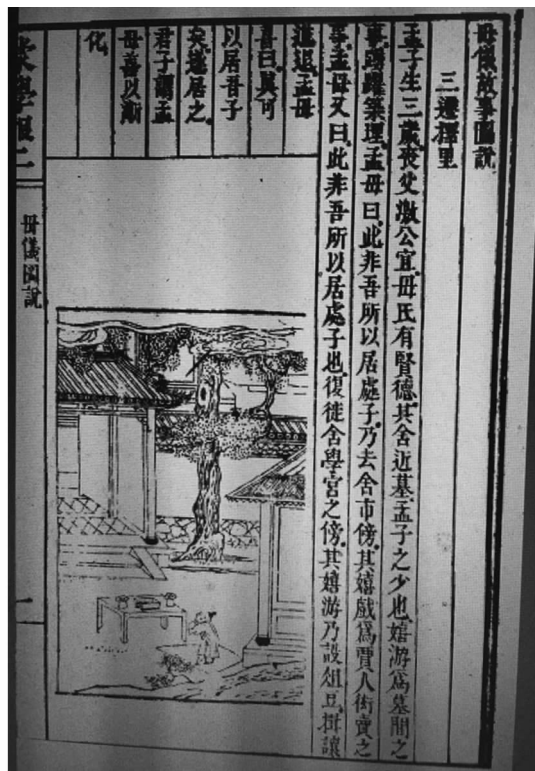 母儀故事圖說
三遷擇里
孟子生三歲喪父激公宜母氏有賢德其舍近墓孟子之少也嬉游爲墓間之
事踴躍築埋孟母曰此非吾所以居處子乃去舍市傍其嬉戲爲賈人衒賣之
事孟母又曰此非吾所以居處子也復徙舍學宮之傍其嬉游乃設俎豆揖讓
進退孟母
喜曰真可
以居吾子
矣遂居之
君子謂孟
母善以漸
化
母儀圖說
二